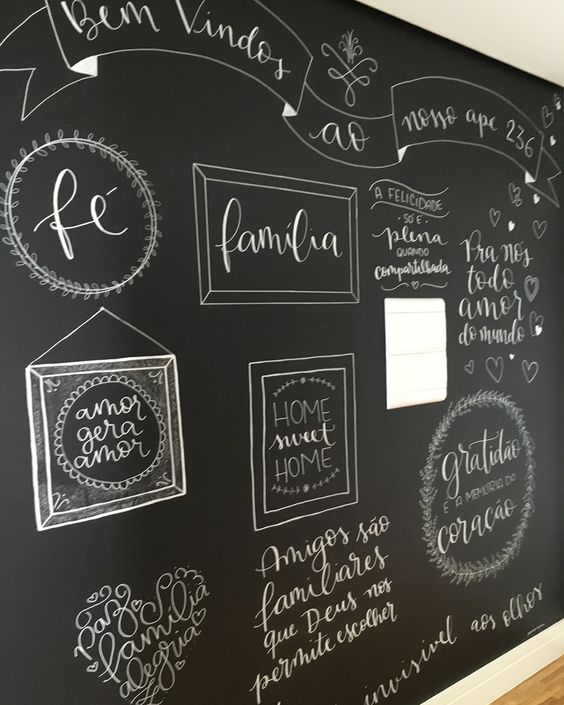 Bem Vindos
ao
nosso ape 236
fé
família
A FELICIDADE
SÓ É
plena
QUANDO
compartilhada
Pra nós
todo
amor
do mundo
amor
gera
amor
HOME
sweet
HOME
gratidão
É A MEMÓRIA DO
coração
paz
família
alegria
Amigos são
familiares
que Deus nos
permite escolher
invisível aos olhos